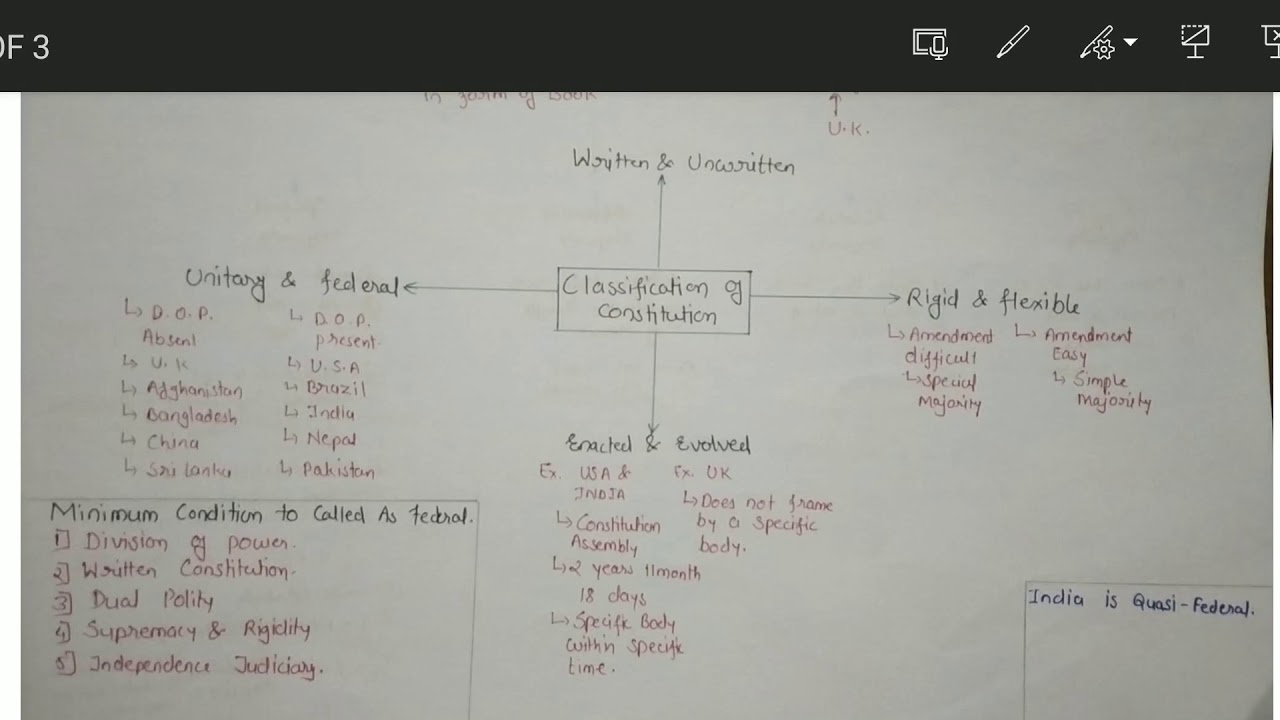 OF 3
in form of Book
↑
U.K.
Written & Unwritten
Classification of
Constitution
Unitary & federal
↳ D.O.P.
Absent
↳ U.K
↳ Afghanistan
↳ Bangladesh
↳ China
↳ Sri Lanka
↳ D.O.P.
present.
↳ U.S.A
↳ Brazil
↳ India
↳ Nepal
↳ Pakistan
Rigid & flexible
↳ Amendment
difficult
↳ Special
Majority
↳ Amendment
Easy
↳ Simple
Majority
Enacted & Evolved
Ex. USA &
INDIA
↳ Constitution
Assembly
↳ 2 years 11month
18 days
↳ Specific Body
within specific
time.
Ex. UK
↳ Does not frame
by a specific
body.
Minimum Condition to Called As federal.
1] Division of power.
2] Written Constitution.
3] Dual Polity
4] Supremacy & Rigidity
5] Independence Judiciary.
India is Quasi-Federal.